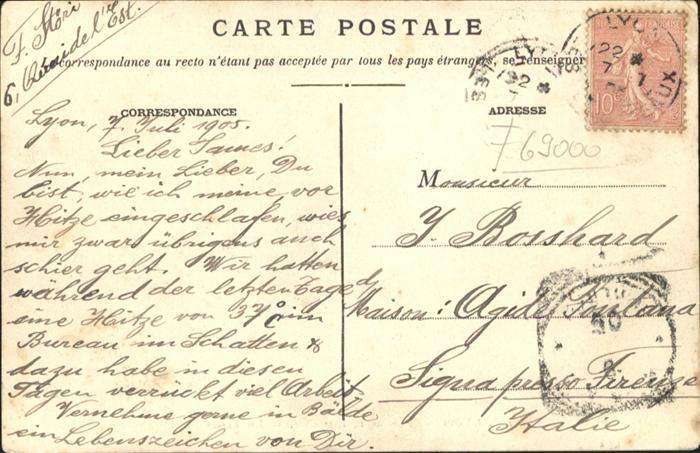 F. Störi
6, Quai de l'Est.
CARTE POSTALE
La correspondance au recto n'étant pas acceptée par tous les pays étrangers, se renseigner
CORRESPONDANCE
ADRESSE
Lyon, 7. Juli 1905.
Lieber James!
Nun, mein Lieber, Du
bist, wie ich meine, vor
Hitze eingeschlafen, wies
mir zwar übrigens auch
schier geht. Wir hatten
während der letzten Tage
eine Hitze von 37° im
Bureau im Schatten &
dazu habe in diesen
Tagen verrückt viel Arbeit.
Vernehme gerne in Bälde
ein Lebenszeichen von Dir.
LYON
69000
10
Monsieur
J. Bosshard
Maison:
Signa presso Firenze
Italie